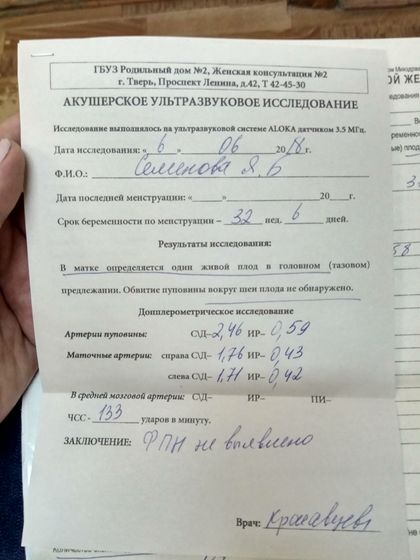 ГБУЗ Родильный дом №2, Женская консультация №2
г. Тверь, Проспект Ленина, д.42, Т 42-45-30
АКУШЕРСКОЕ УЛЬТРАЗВУКОВОЕ ИССЛЕДОВАНИЕ
Исследование выполнялось на ультразвуковой системе ALOKA датчиком 3.5 МГц.
Дата исследования: «6» 06 2018 г.
Ф.И.О.: Семенова Я. Б
Дата последней менструации: «____»__________20____г.
Срок беременности по менструации – 32 нед. 6 дней.
Результаты исследования:
В матке определяется один живой плод в головном (тазовом)
предлежании. Обвитие пуповины вокруг шеи плода не обнаружено.
Допплерометрическое исследование
Артерии пуповины: С\Д– 2,46 ИР– 0,59
Маточные артерии: справа С\Д– 1,76 ИР– 0,43
слева С\Д– 1,71 ИР– 0,42
В средней мозговой артерии: С\Д– ИР– ПИ–
ЧСС - 133 ударов в минуту.
ЗАКЛЮЧЕНИЕ: ФПН не выявлено
Врач: